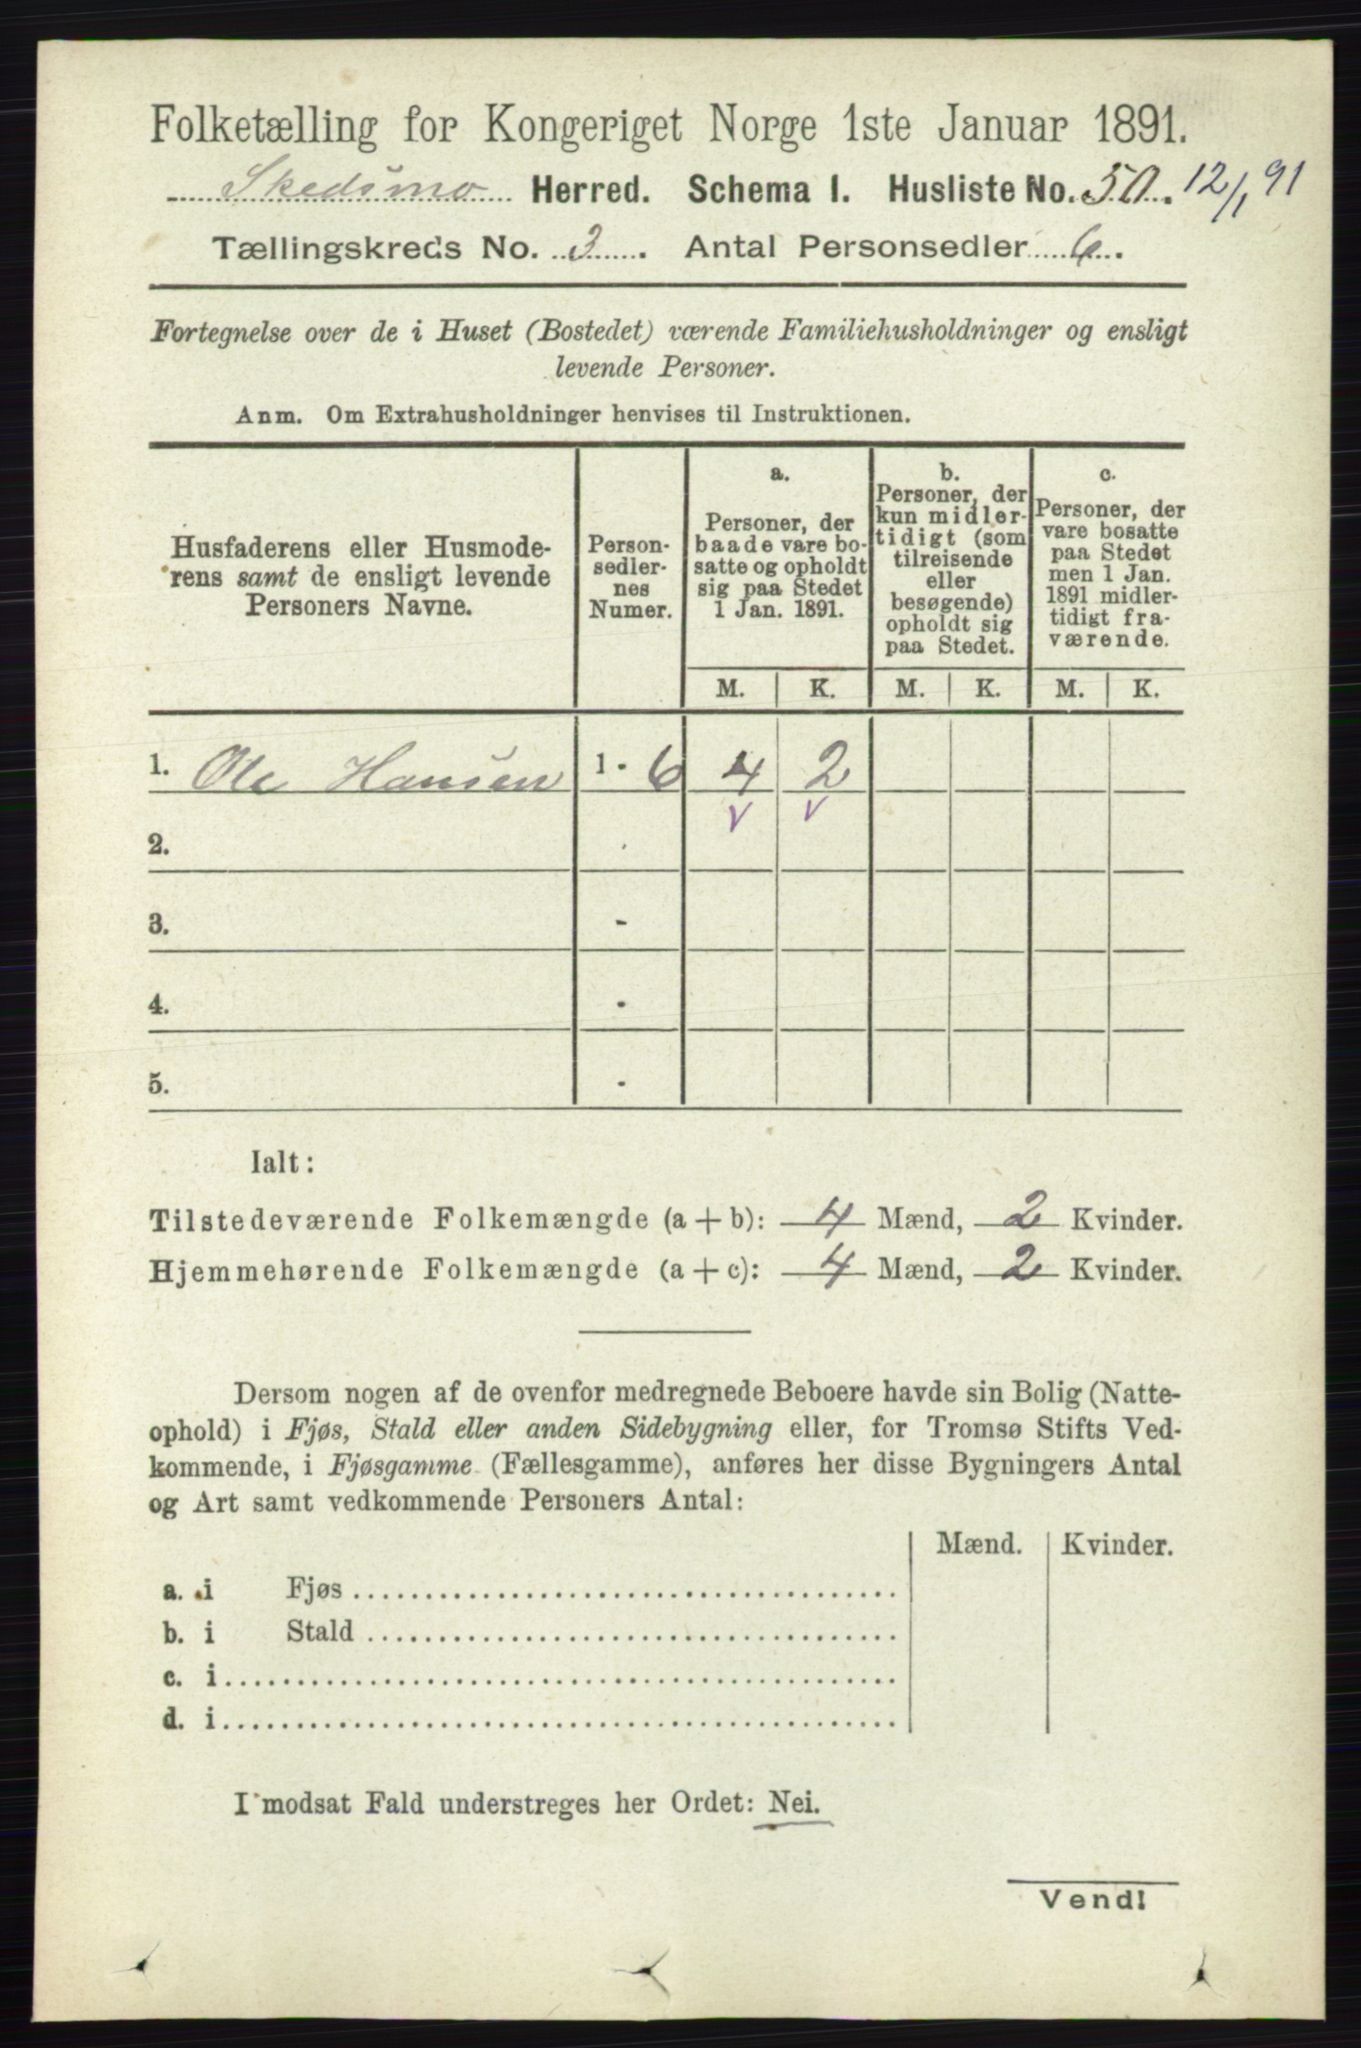 Folketælling for Kongeriget Norge 1ste Januar 1891.
Skedsmo Herred. Schema 1. Husliste No. 50. 12/1 91
Tællingskreds No. 3. Antal Personsedler 6.
Fortegnelse over de i Huset (Bostedet) værende Familiehusholdninger og ensligt
levende Personer.
Anm. Om Extrahusholdninger henvises til Instruktionen.
Husfaderens eller Husmode-
rens samt de ensligt levende
Personers Navne.
Person-
sedler-
nes
Numer.
a.
Personer, der
baade vare bo-
satte og opholdt
sig paa Stedet
1 Jan. 1891.
b.
Personer, der
kun midler-
tidigt (som
tilreisende
eller
besøgende)
opholdt sig
paa Stedet.
c.
Personer, der
vare bosatte
paa Stedet
men 1 Jan.
1891 midler-
tidigt fra-
værende.
M. K. M. K. M. K.
1. Ole Hansen 1 - 6 4 2
v v
2. -
3. -
4. -
5. -
Ialt:
Tilstedeværende Folkemængde (a + b): 4 Mænd, 2 Kvinder.
Hjemmehørende Folkemængde (a + c): 4 Mænd, 2 Kvinder.
Dersom nogen af de ovenfor medregnede Beboere havde sin Bolig (Natte-
ophold) i Fjøs, Stald eller anden Sidebygning eller, for Tromsø Stifts Ved-
kommende, i Fjøsgamme (Fællesgamme), anføres her disse Bygningers Antal
og Art samt vedkommende Personers Antal:
Mænd. Kvinder.
a. i Fjøs
b. i Stald
c. i
d. i
I modsat Fald understreges her Ordet: Nei.
Vend!